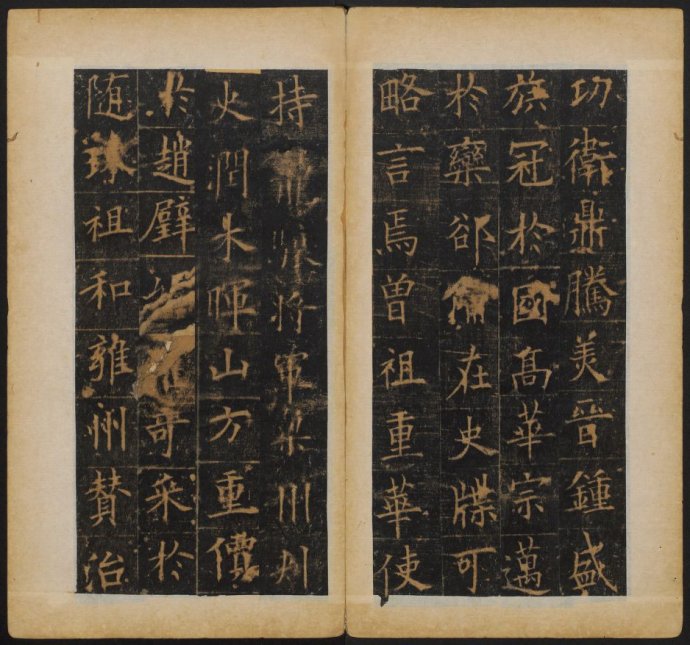 功衛鼎騰美晉鍾盛
族冠於國高華宗邁
於欒郤在史牒可
略言焉曾祖重華使
持驤將軍梁州刾
史潤木暉山方重價
於趙璧奇采於
隨珠祖和雍州贊治